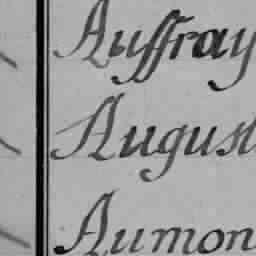 Auffray
August
Aumon